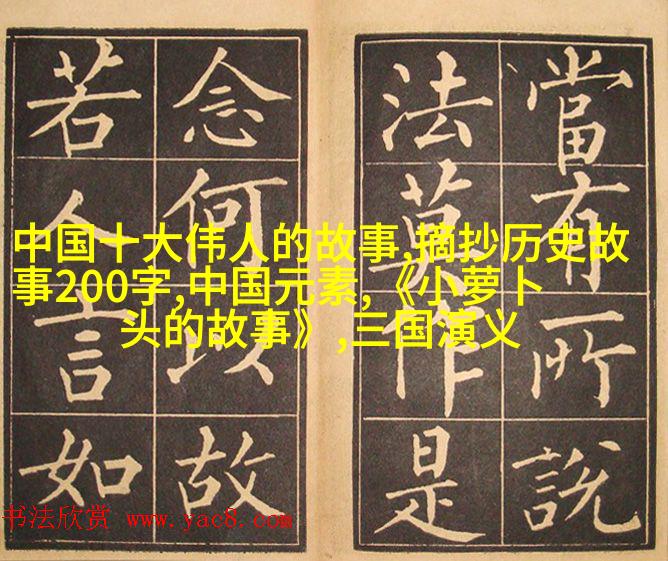 當有所說
法莫作是
念何以故
若人言如
中国十大伟人的故事,摘抄历史故
事200字,中国元素,《小萝卜
头的故事》,三国演义
书法欣赏 www.yac8.com